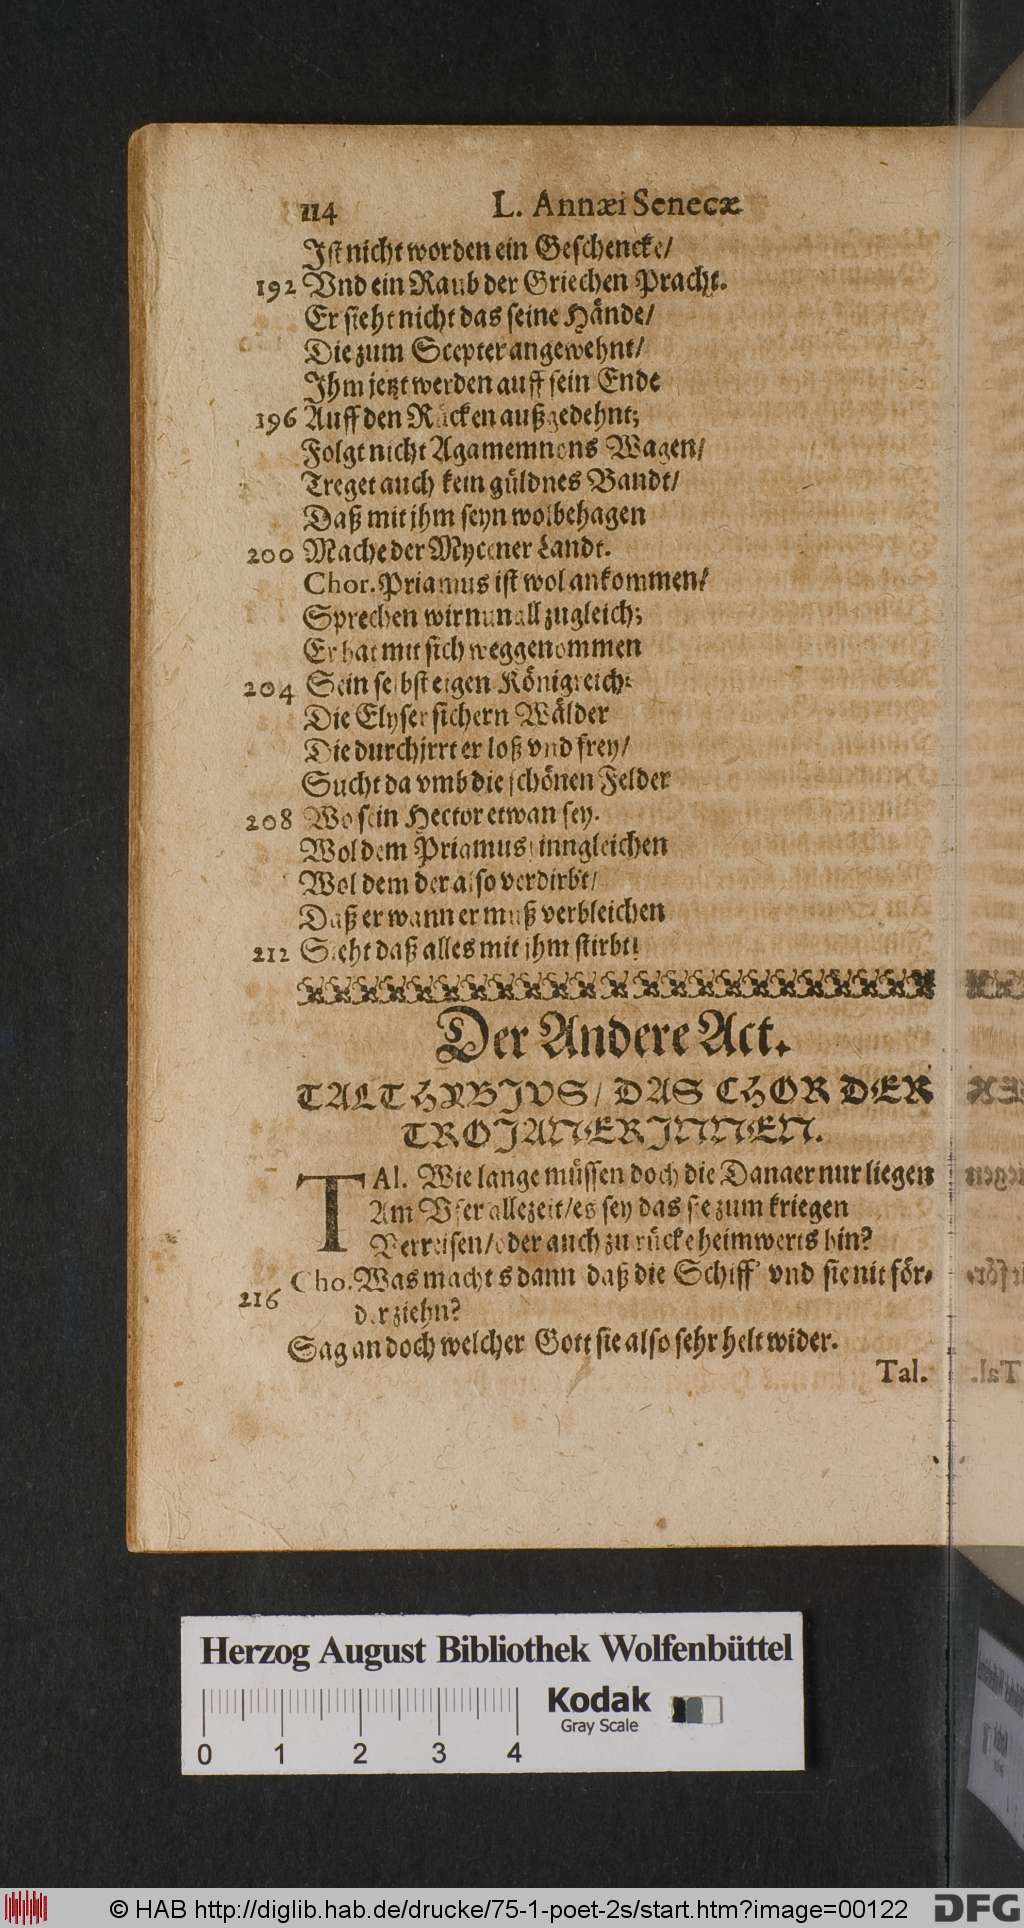 114 L. Annæi Senecæ
Ist nicht worden ein Geschencke/
192 Vnd ein Raub der Griechen Pracht.
Er sieht nicht das seine Hände/
Die zum Scepter angewehnt/
Ihm jetzt werden auff sein Ende
196 Auff den Rücken außgedehnt;
Folgt nicht Agamemnons Wagen/
Treget auch kein güldnes Bandt/
Daß mit jhm seyn wolbehagen
200 Mache der Mycener Landt.
Chor. Priamus ist wol ankommen/
Sprechen wir nun all zugleich;
Er hat mit sich weggenommen
204 Sein selbst eigen Königreich:
Die Elyser sichern Wälder
Die durchjrrt er loß vnd frey/
Sucht da vmb die schönen Felder
208 Wo sein Hector etwan sey.
Wol dem Priamus; inngleichen
Wol dem der also verdirbt/
Daß er wann er muß verbleichen
212 Sieht daß alles mit jhm stirbt!
Der Andere Act.
TALTHYBIVS/ DAS CHOR DER
TROJANERINNEN.
TAl. Wie lange müssen doch die Danaer nur liegen
Am Vfer allezeit/ es sey das sie zum kriegen
Verreisen/ oder auch zu rücke heimwerts hin?
216 Cho. Was machts dann daß die Schiff' vnd sie nit för-
der ziehn?
Sag an doch welcher Gott sie also sehr helt wider.
Tal.
Herzog August Bibliothek Wolfenbüttel
Kodak
Gray Scale
0 1 2 3 4
© HAB http://diglib.hab.de/drucke/75-1-poet-2s/start.htm?image=00122 DFG